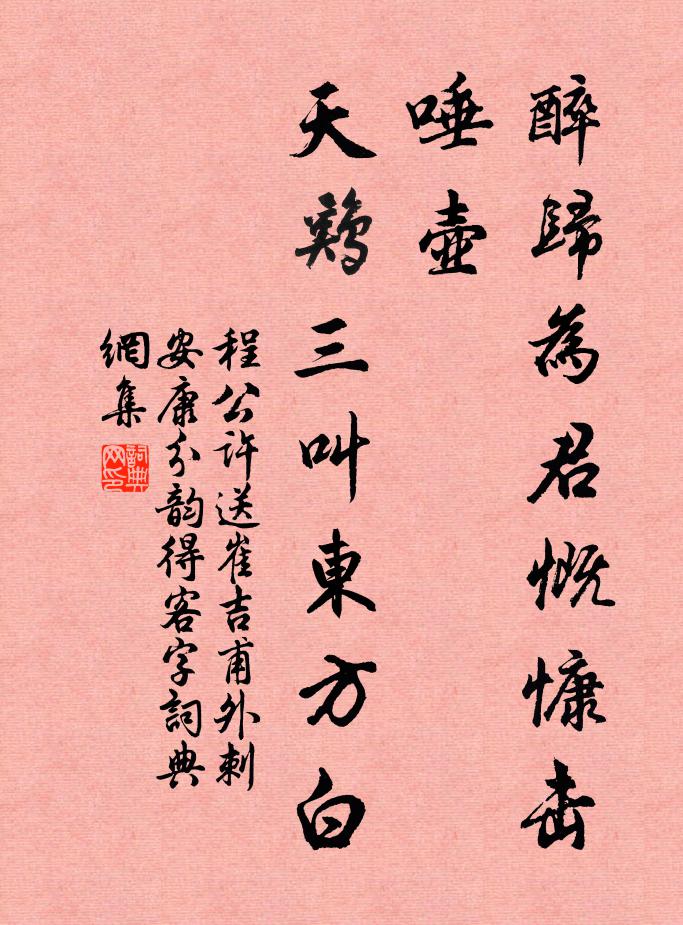 醉歸為君慨慷击
唾壺
天鷄三叫東方白
程公許送崔吉甫外刺
安康分韵得客字詞典
網集
詞典
网印